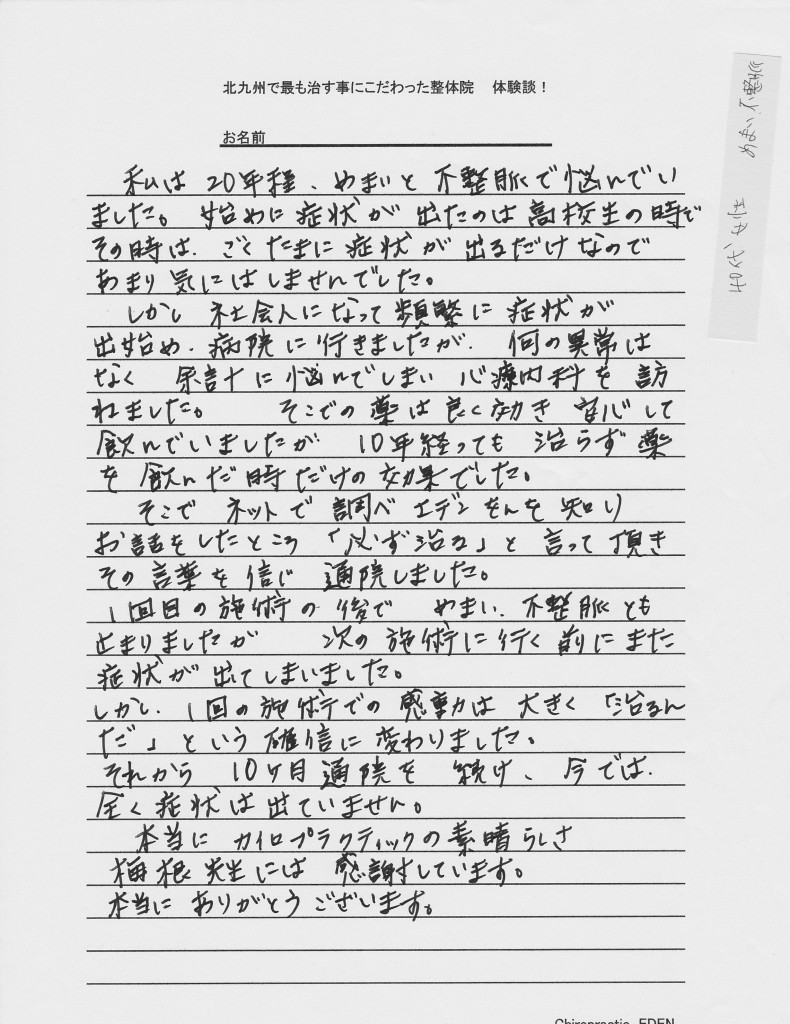 北九州で最も治す事にこだわった整体院 体験談！
お名前
私は 20年程、めまいと 不整脈で悩んでい
ました。始めに症状が出たのは高校生の時で
その時は、ごくたまに症状が出るだけなので
あまり気にはしませんでした。
しかし 社会人になって頻繁に症状が
出始め、病院に行きましたが、何の異常は
なく 余計に悩んでしまい 心療内科を訪
ねました。 そこでの薬は良く効き 安心して
飲んでいましたが 10年経っても 治らず薬
を飲んだ時だけの効果でした。
そこで ネットで調べ エデンさんを知り
お話をしたところ「必ず治る」と言って頂き
その言葉を信じ 通院しました。
1回目の施術の後で めまい、不整脈とも
止まりましたが 次の施術に行く前にまた
症状が出てしまいました。
しかし、1回の施術での感動は大きく「治るん
だ」という確信に変わりました。
それから 10ヶ月通院を続け、今では、
全く症状は出ていません。
本当に カイロプラクティックの素晴らしさ
梅根先生には 感謝しています。
本当に ありがとうございます。
Chiropractic EDEN